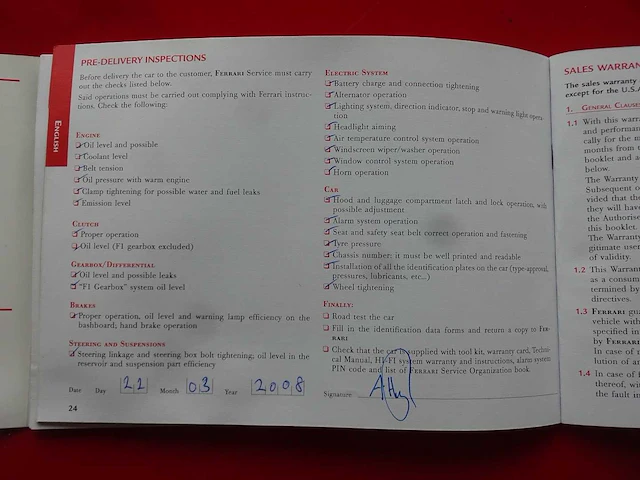 PRE-DELIVERY INSPECTIONS
Before delivery the car to the customer, FERRARI Service must carry
out the checks listed below.
Said operations must be carried out complying with Ferrari instruc-
tions. Check the following:
ENGLISH
ENGINE
Oil level and possible
Coolant level
Belt tension
Oil pressure with warm engine
Clamp tightening for possible water and fuel leaks
Emission level
CLUTCH
Proper operation
Oil level (F1 gearbox excluded)
GEARBOX/DIFFERENTIAL
Oil level and possible leaks
"F1 Gearbox" system oil level
BRAKES
Proper operation, oil level and warning lamp efficiency on the
dashboard, hand brake operation
STEERING AND SUSPENSIONS
Steering linkage and steering box bolt tightening; oil level in the
reservoir and suspension part efficiency
Date Day 21 Month 03 Year 2008
24
ELECTRIC SYSTEM
Battery charge and connection tightening
Alternator operation
Lighting system, direction indicator, stop and warning light opera-
tion
Headlight aiming
Air temperature control system operation
Windscreen wiper/washer operation
Window control system operation
Horn operation
CAR
Hood and luggage compartment latch and lock operation, with
possible adjustment
Alarm system operation
Seat and safety seat belt correct operation and fastening
Tyre pressure
Chassis number: it must be well printed and readable
Installation of all the identification plates on the car (type-approval,
pressures, lubricants, etc...)
Wheel tightening
FINALLY:
Road test the car
Fill in the identification data forms and return a copy to FER-
RARI
Check that the car is supplied with tool kit, warranty card, Techni-
cal Manual, HI-FI system warranty and instructions, alarm system
PIN code and list of FERRARI Service Organization book
Signature
SALES WARRAN
The sales warranty
except for the U.S.A
1. GENERAL CLAUSE
1.1 With this warr
and performan
cally for the m
months from t
booklet and a
below.
The Warranty
Subsequent o
vided that the
they will have
the Authorise
this booklet.
The Warranty
gitimate user
of validity.
1.2 This Warrant
as a consum
termined by
directives.
1.3 FERRARI gua
vehicle with
specified in
by FERRARI
In case of t
lution of an
1.4 In case of f
thereof, wit
the fault in